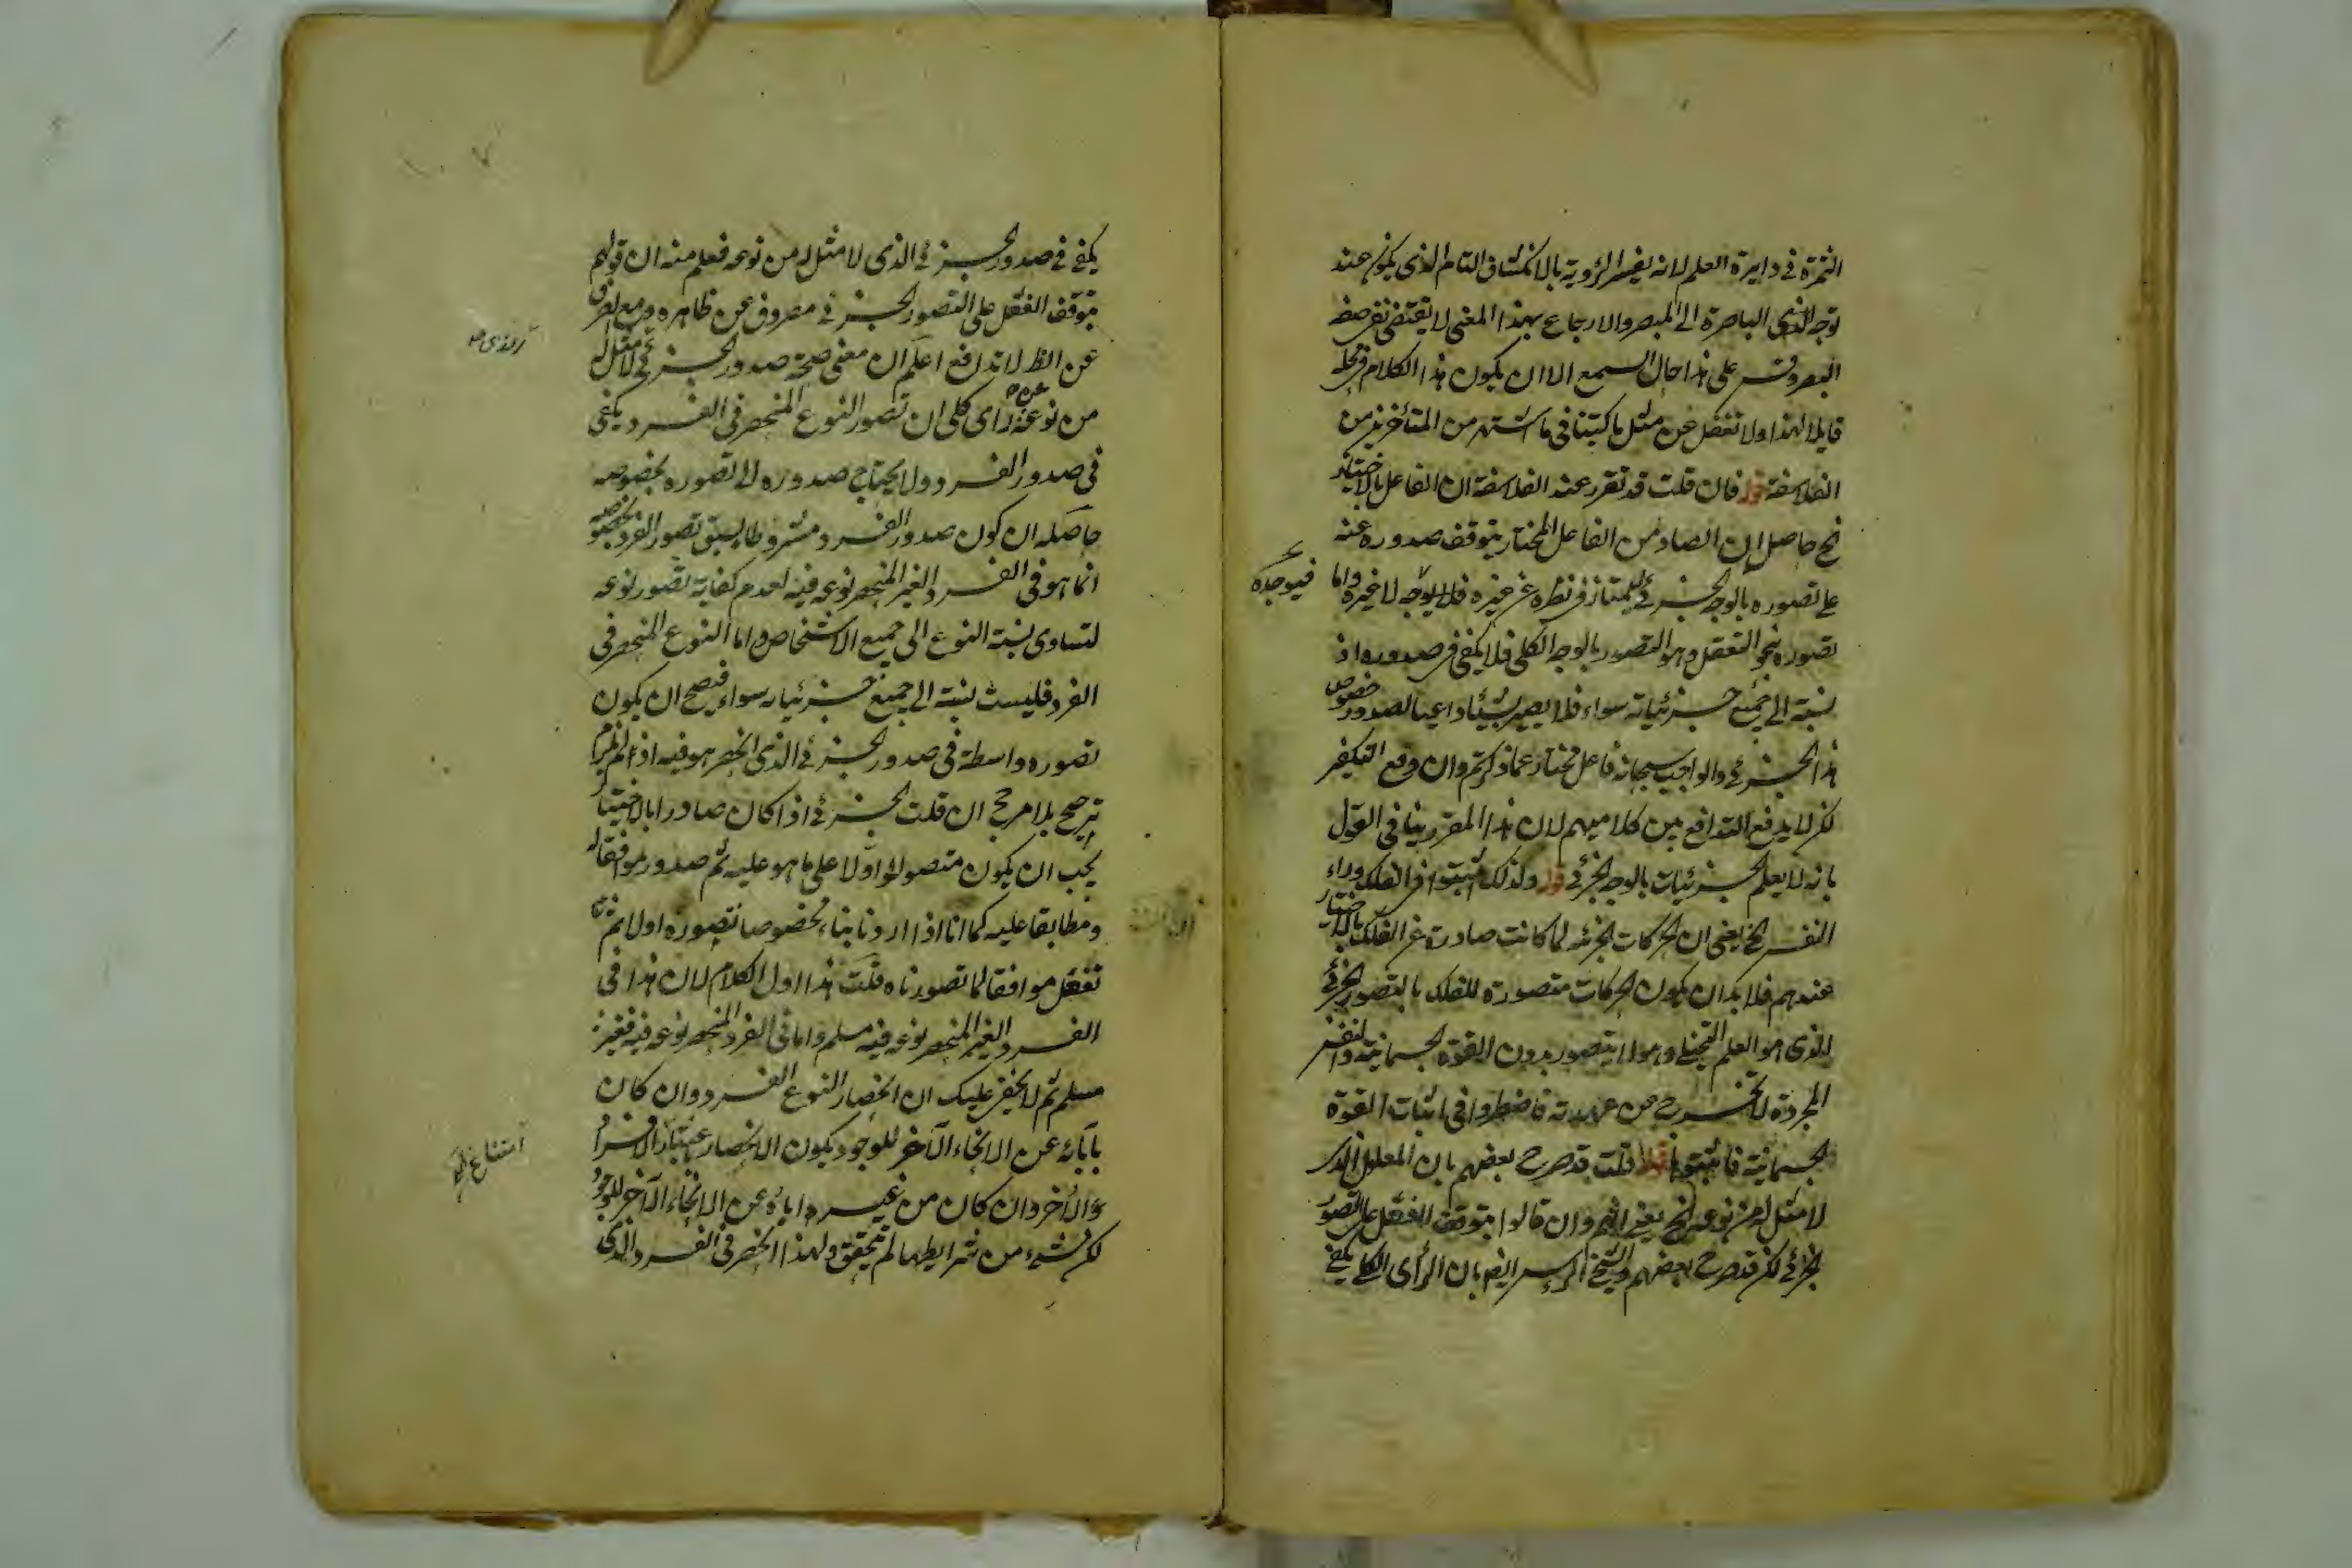 الثمرة فى دايرة العلم لانه يفسر الرؤية بالانكشاف التام الذى يكون عند
توجه الذى الباصرة الى المبصر والارجاع بهذا المعنى لا يقتضى نفى صفة
البصر وقس على هذا حال السمع الا ان يكون هذا الكلام
قايلا لهذا ولا تغفل عن مثل ما كتبنا فى ما اشتهر من المتأخرين من
الفلاسفة قوله فان قلت قد تقرر عند الفلاسفة ان الفاعل بالاختيار
الخ حاصله ان الصادر من الفاعل المختار يتوقف صدوره عنه
على تصوره بالوجه الجزئى ليمتاز فى نظره عن غيره فلا يوجد لا غيره واما
فيوجده
تصوره بنحو التعقل وهو التصور بالوجه الكلى فلا يكفى فى صدوره اذ
نسبته الى جميع جزئياته سواء فلا يصير شيئا داعيا لصدور خصوص
هذا الجزئى والواجب سبحانه فاعل مختار عما ذكرتم وان دفع التكفير
لكن لا يدفع التدافع بين كلاميهم لان هذا المقرر ينافى القول
بانه لا يعلم الجزئيات بالوجه الجزئى قوله ولذلك اثبتوا فى الفلك وراء
النفس الخ يعنى ان الحركات الجزئية لما كانت صادرة عن الفلك بالاختيار
عندهم فلا بد ان يكون الحركات متصورة للفلك بالتصور الجزئى
الذى هو العلم التخيلى وهو لا يتصور بدون القوة الجسمانية والنفس
المجردة لا تخرج عن عهدته فاضطروا فى اثبات القوة
الجسمانية فاثبتوها قوله قلت قد صرح بعضهم بان المعلول الذى
لا مثل له من نوعه الخ يعنى انهم وان قالوا بتوقف الفعل على التصور
الجزئى لكن قد صرح بعضهم والشيخ الرئيس ايضا بان الرأى الكلى يكفى
يكفى فى صدور الجزئى الذى لا مثل له من نوعه فعلم منه ان قولهم
بتوقف الفعل على التصور الجزئى مصروف عن ظاهره ومع الصرف
عن الظ لا تدافع اعلم ان معنى صحة صدور الجزئى لا مثل له
من نوعه عن رأى كلى ان تصور النوع المنحصر فى الفرد يكفى
فى صدور الفرد ولا يحتاج صدوره الى تصوره بخصوصه
حاصله ان كون صدور الفرد مشروطا بسبق تصور الفرد بخصوصه
انما هو فى الفرد الغير المنحصر نوعه فيه لعدم كفاية تصور نوعه
لتساوى نسبة النوع الى جميع الاشخاص واما النوع المنحصر فى
الفرد فليست نسبته الى جميع جزئياته سواء فيصح ان يكون
تصوره واسطة فى صدور الجزئى الذى انحصر هو فيه اذ لم يلزم
ترجيح بلا مرجح ان قلت الجزئى اذا كان صادرا بالاختيار
يجب ان يكون متصورا اولا على ما هو عليه ثم صدور موافقا له
ومطابقا عليه كما انا اذا اردنا بناء مخصوصا نتصوره اولا ثم
نفعل موافقا لما تصورناه قلت هذا اول الكلام لان هذا فى
الفرد الغير المنحصر نوعه فيه مسلم واما فى الفرد المنحصر نوعه فيه فغير
مسلم ثم لا يخفى عليك ان انحصار النوع الفرد وان كان
بابائه عن الانحاء الآخر للوجود يكون الانحصار
الآخر وان كان من غيره اباؤه عن الانحاء الآخر للوجود
لكن شىء من شرايطها لم يتحقق ولهذا انحصر فى الفرد الذى